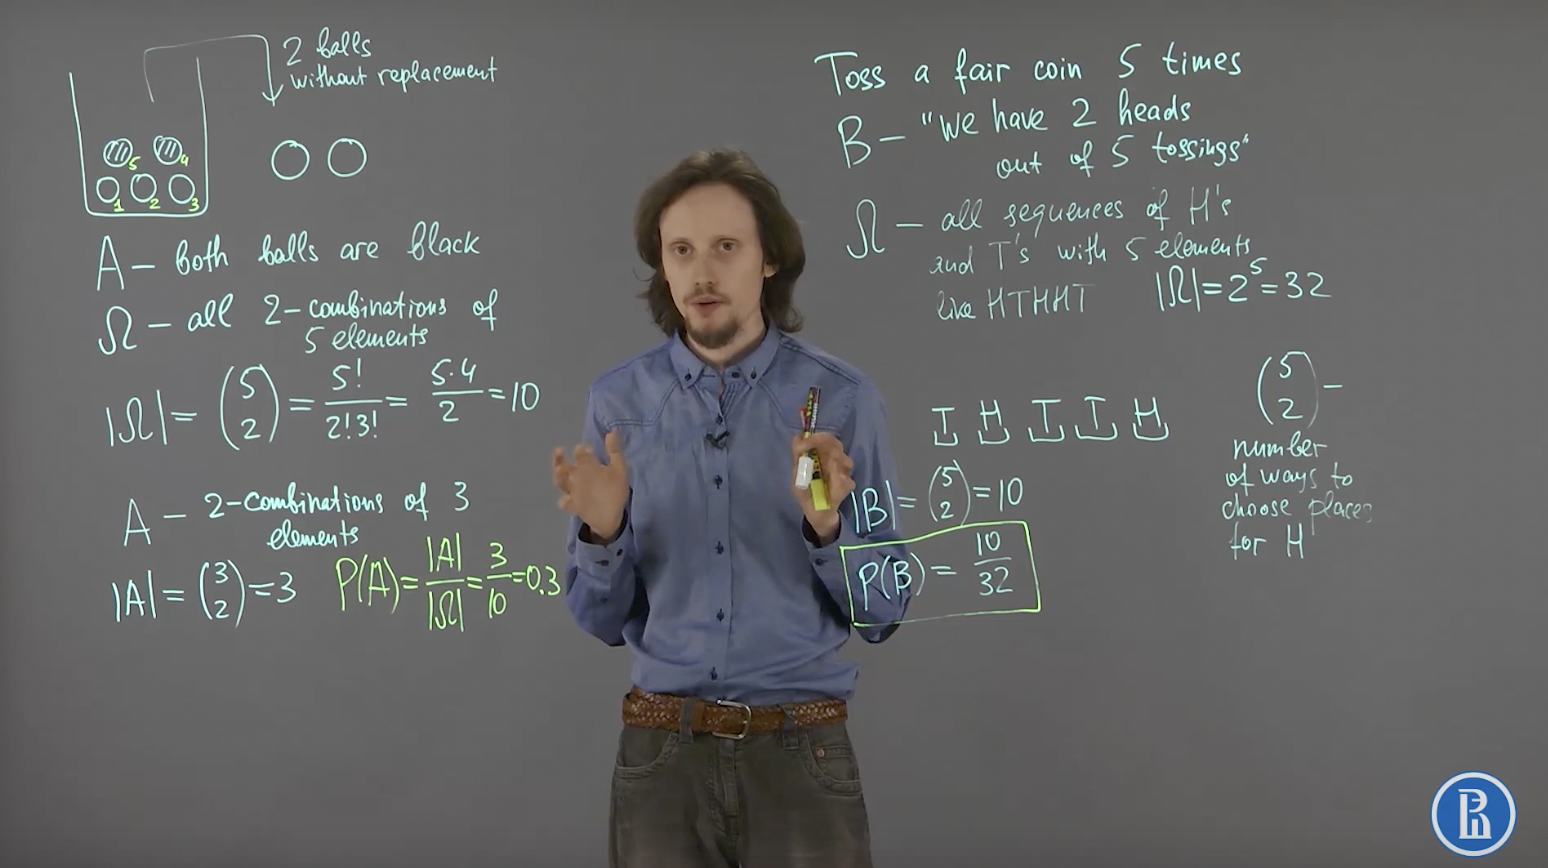 2 balls
without replacement
5 4
1 2 3
A – both balls are black
Ω – all 2-combinations of
5 elements
|Ω| = (5 2) = 5!/2!3! = 5·4/2 = 10
A – 2-combinations of 3
elements
|A| = (3 2) = 3 P(A) = |A|/|Ω| = 3/10 = 0.3
Toss a fair coin 5 times
B – "We have 2 heads
out of 5 tossings"
Ω – all sequences of H's
and T's with 5 elements
like HTHHT |Ω| = 2⁵ = 32
T H T T H
|B| = (5 2) = 10
P(B) = 10/32
(5 2) –
number
of ways to
choose places
for H